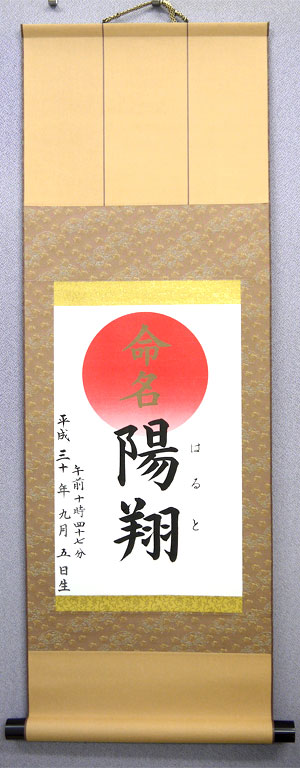 命名
陽翔
はると
午前十時四十七分
平成三十年九月五日生